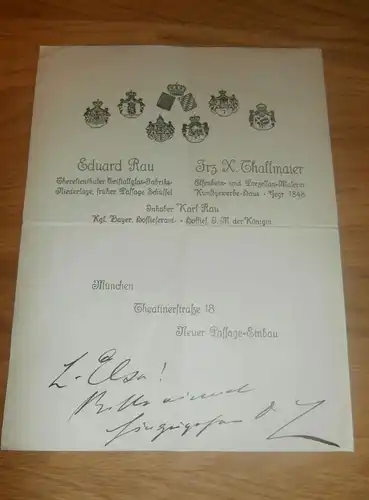 Eduard Rau
Theresienthaler Cristallglas-Fabriks-
Niederlage, früher Passage Schüssel
Frz. X. Thallmaier
Elfenbein- und Porzellan-Malerei
Kunstgewerbe-Haus - Gegr. 1848
Inhaber Karl Rau
Kgl. Bayer. Hoflieferant - Hoflief. I. M. der Königin
München
Theatinerstraße 18
Neuer Passage-Einbau
L. Elsa!
Bitte einmal